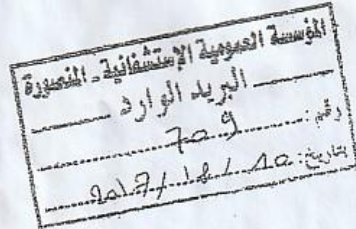 المؤسسة العمومية الإستشفائية - المنصورة
البريد الوارد
رقم: 709
بتاريخ: 2017/12/10